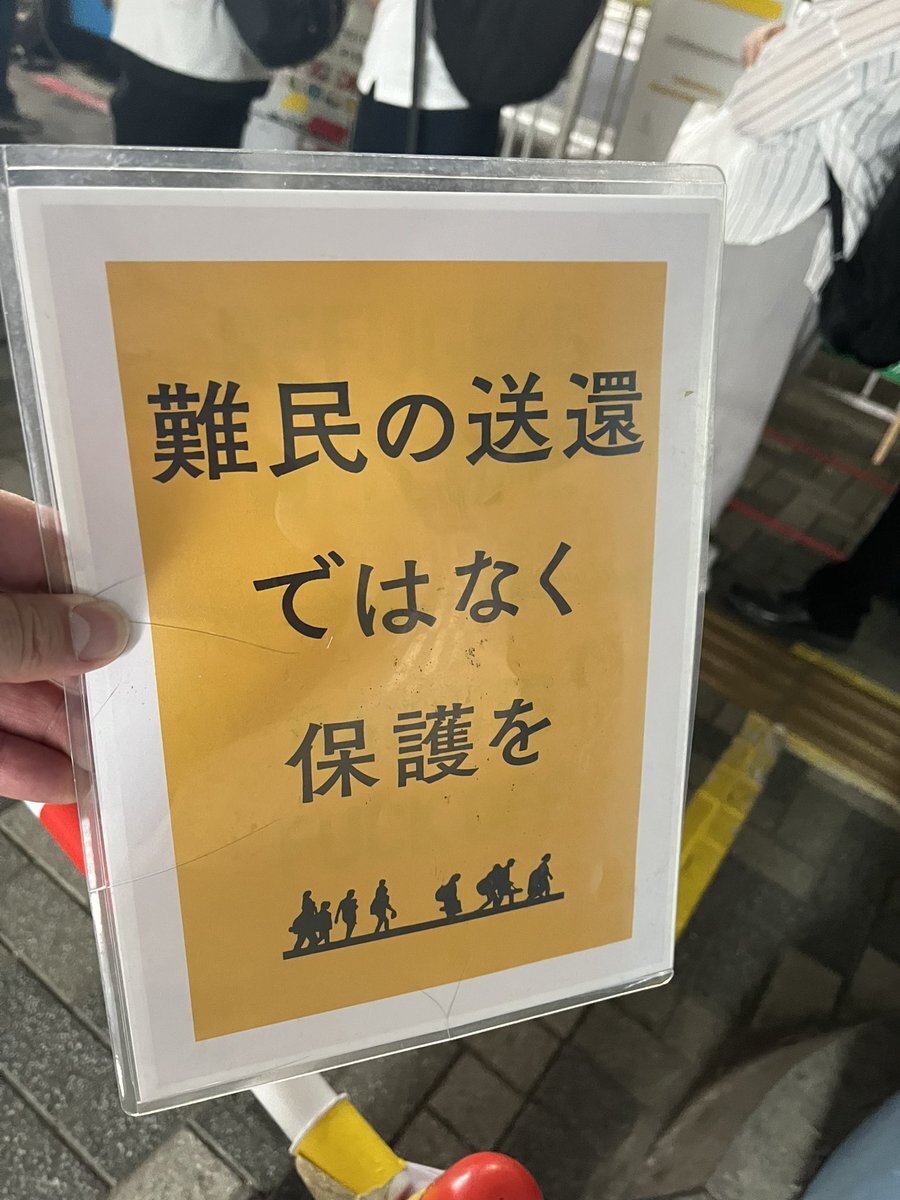 難民の送還
ではなく
保護を